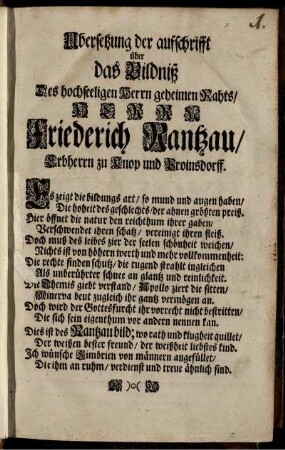 A.
Ubersetzung der aufschrifft
über
das Bildniß
Des hochseeligen Herrn geheimen Rahts/
HERRN
Friederich Rantzau/
Erbherrn zu Knop und Troinsdorff.
Es zeigt die bildungs art/ so mund und augen haben/
Die hoheit des geschlechts/ der ahnen größten preiß.
Hier öffnet die natur den reichthum ihrer gaben/
Verschwendet ihren schatz/ vereinigt ihren fleiß.
Doch muß des leibes zier der seelen schönheit weichen/
Nichts ist von höhern werth und mehr vollkommenheit:
Die rechte finden schutz/ die tugend strahlt ingleichen
Als unberührter schnee an glantz und reinlichkeit.
Die Themis giebt verstand/ Apollo ziert die sitten/
Minerva beut zugleich ihr gantz vermögen an.
Doch wird der Gottesfurcht ihr vorrecht nicht bestritten/
Die sich sein eigenthum vor andern nennen kan.
Dies ist des Rantzau bild; wo rath und klugheit quillet/
Der weisen bester freund/ der weißheit liebstes kind.
Ich wünsche Cimbrien von männern angefüllet/
Die ihm an ruhm/ verdienst und treue ähnlich sind.